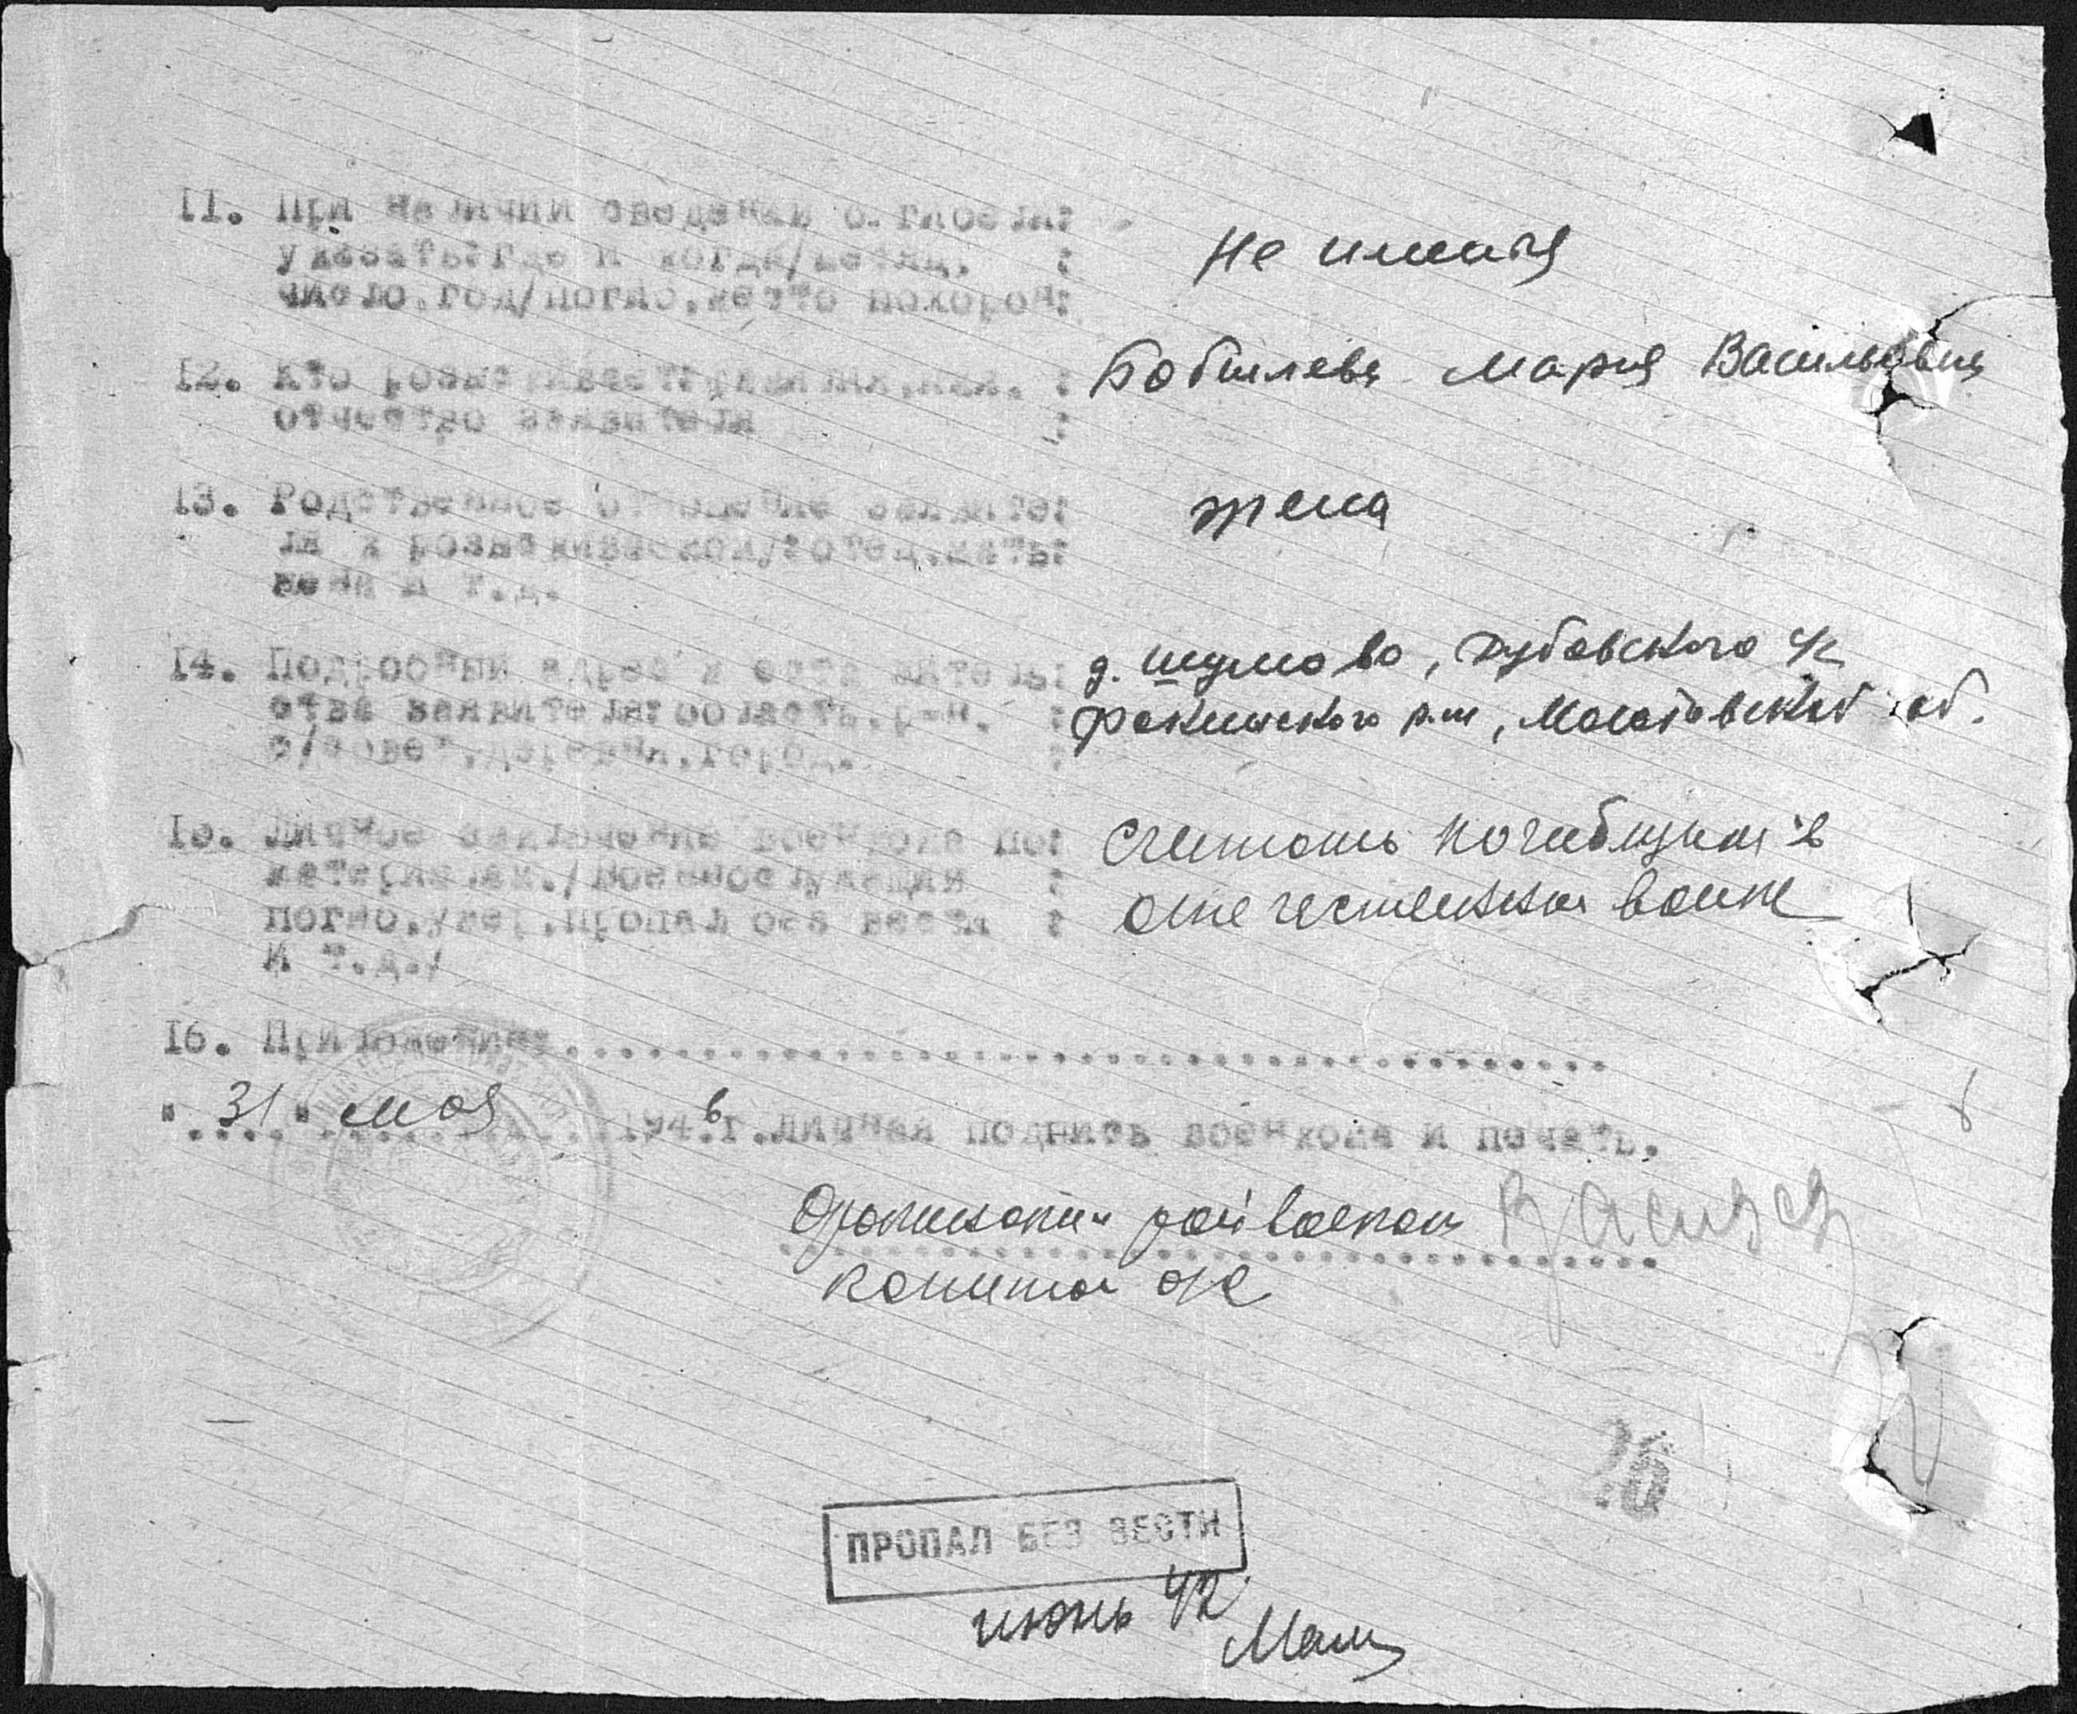 11. При наличии сведений о гибели:
указать:где и когда/месяц,    :
число,год/погиб,место похорон:
не имеится
12. Кто розыскивает:фамилия,имя,  :
отчество заявителя    :
Бобылева Мария Васильевна
13. Родственное отношение заявите:
ля к розыскиваемому:отец,мать:
жена и т.д.
жена
14. Подробный адрес места житель:
ства заявителя:область,р-н,   :
с/совет,деревня,город.    :
д. Шумово, Дубовского с/с
Фокинского р-на, Молотовской об.
15. Личное заключение военкома по:
материалам./Военнослужащий    :
погиб,умер,пропал без вести   :
и т.д./
Считать погибшим в
отечественной войне
16. Приложение:........................................
"31" мая 1946г.личная подпись военкома и печать.
Фокинский райвоенком
капитан
26
ПРОПАЛ БЕЗ ВЕСТИ
июнь 42